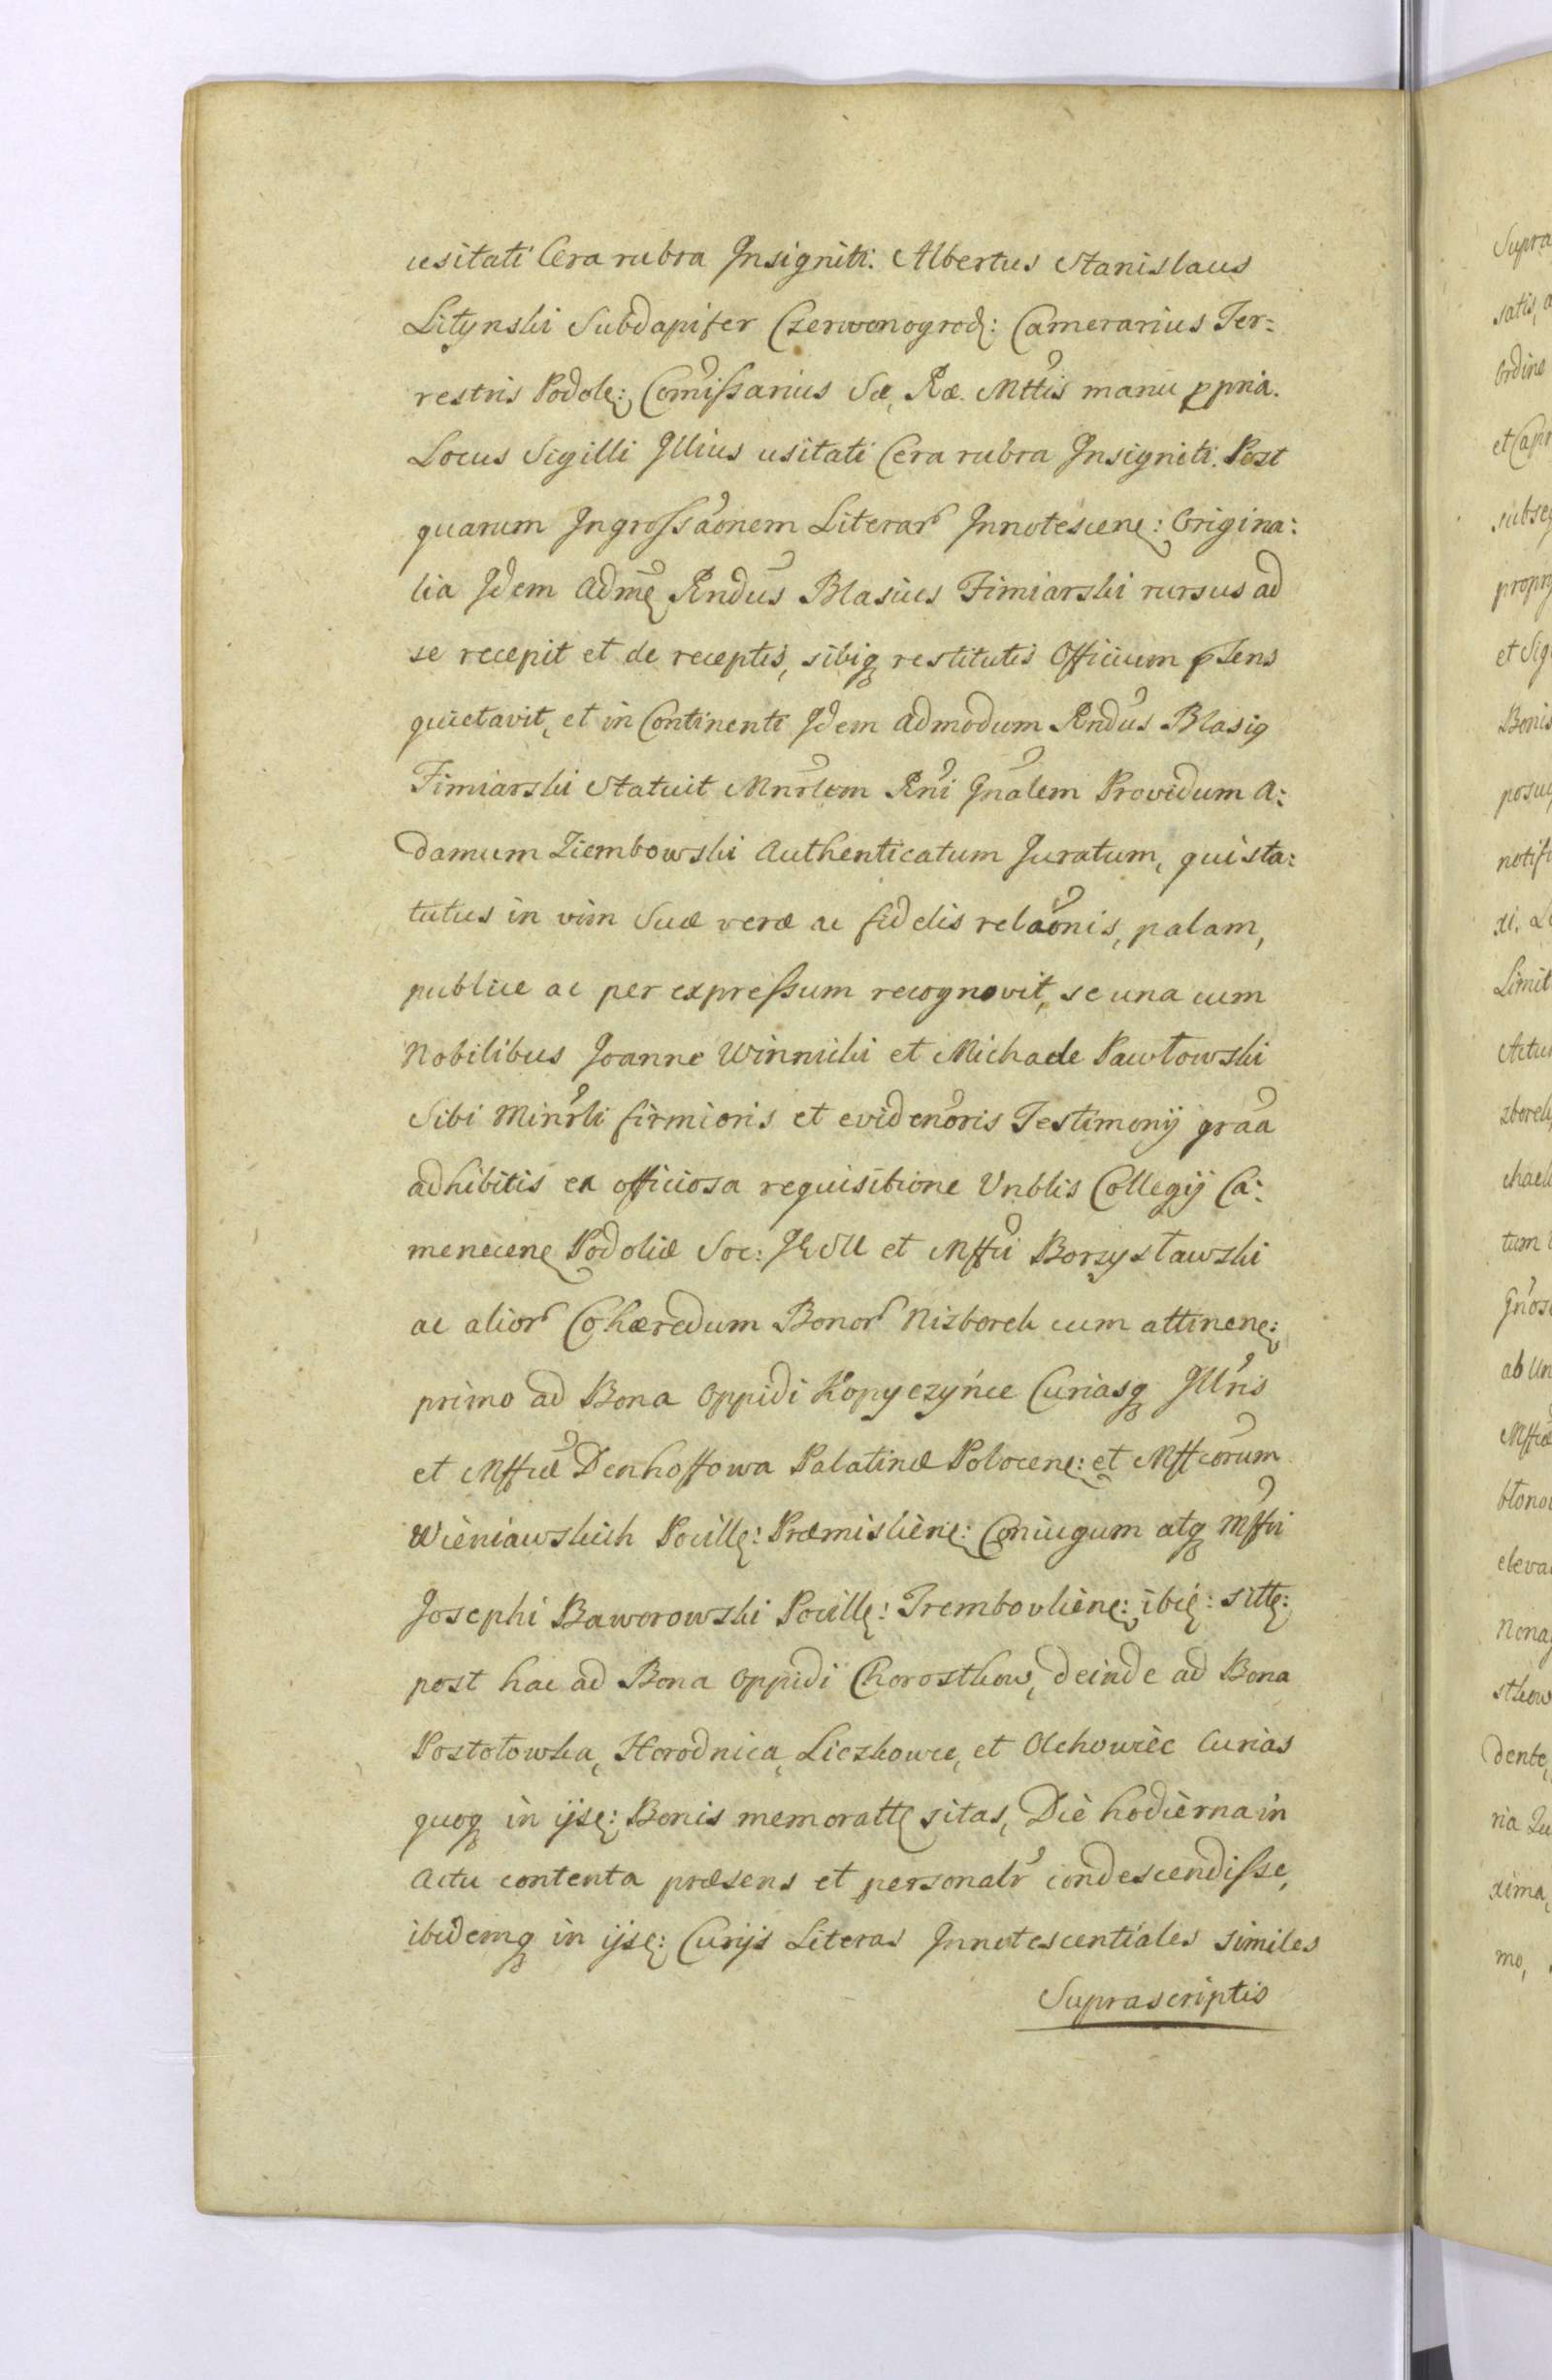 usitati Cera rubra Insigniti. Albertus Stanislaus
Litynski Subdapifer Czerwonogrod: Camerarius Ter=
restris Podole: Comissarius Sæ, Ræ. Mttis manu ppria.
Locus Sigilli Illius usitati Cera rubra Insigniti. Post
quarum Ingrossaonem Literar Innotescene: Origina:
lia Idem Adme Rndus Blasius Fimiarski rursus ad
se recepit et de receptis, sibiq restitutis Officium psens
quietavit, et in Continenti Idem Admodum Rndus Blasig
Fimiarski Statuit Mnrlem Rni Gnalem Providum A:
damum Ziembowski Authenticatum Juratum, qui sta:
tutus in vim Suæ veræ ac fidelis relaonis, palam,
publice ac per expressum recognovit, se una cum
Nobilibus Joanne Winnicki et Michaele Pawłowski
Sibi Minrli firmioris et evidenoris Testimonij graa
adhibitis ex officiosa requisitione Vnblis Collegij Ca:
menecene Podoliæ Soc: JESU et Mffci Borzysławski
ac alior Cohæredum Bonor Nizborek cum attinene:
primo ad Bona Oppidi Kopyczyńce Curiasq Illris
et Mffcæ Denhoffowa Palatinæ Polocene: et Mffcorum
Wieniawskich Pocille: Præmisliene: Coniugum atq Mffci
Josephi Baworowski Pocille: Trembovliene: ibie: sitte:
post hac ad Bona Oppidi Chorostkow, deinde ad Bona
Postołowka, Horodnica, Liczkowce, et Olchowiec Curias
quoq in ijse: Bonis memoratte sitas, Die hodierna in
Actu contenta præsens et personalr condescendisse,
ibidemq in ijse: Curijs Literas Innotescentiales similes
Suprascriptis